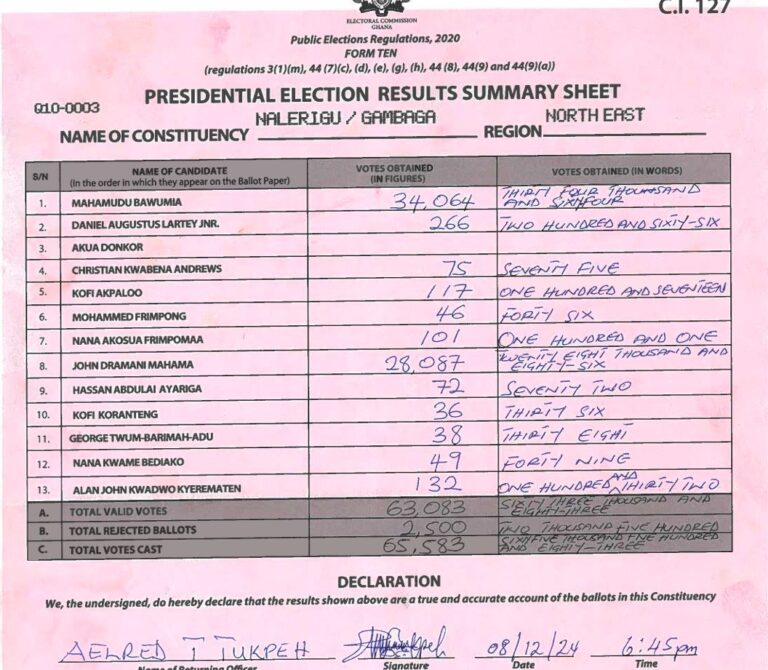 C.I. 127
ELECTORAL COMMISSION
GHANA
Public Elections Regulations, 2020
FORM TEN
(regulations 3(1)(m), 44 (7)(c), (d), (e), (g), (h), 44 (8), 44(9) and 44(9)(a))
PRESIDENTIAL ELECTION RESULTS SUMMARY SHEET
Q10-0003
NAME OF CONSTITUENCY NALERIGU / GAMBAGA REGION NORTH EAST
S/N NAME OF CANDIDATE (In the order in which they appear on the Ballot Paper) VOTES OBTAINED (IN FIGURES) VOTES OBTAINED (IN WORDS)
1. MAHAMUDU BAWUMIA 34,064 THIRTY FOUR THOUSAND AND SIXTY FOUR
2. DANIEL AUGUSTUS LARTEY JNR. 266 TWO HUNDRED AND SIXTY-SIX
3. AKUA DONKOR
4. CHRISTIAN KWABENA ANDREWS 75 SEVENTY FIVE
5. KOFI AKPALOO 117 ONE HUNDRED AND SEVENTEEN
6. MOHAMMED FRIMPONG 46 FORTY SIX
7. NANA AKOSUA FRIMPOMAA 101 ONE HUNDRED AND ONE
8. JOHN DRAMANI MAHAMA 28,087 TWENTY EIGHT THOUSAND AND EIGHTY-SIX
9. HASSAN ABDULAI AYARIGA 72 SEVENTY TWO
10. KOFI KORANTENG 36 THIRTY SIX
11. GEORGE TWUM-BARIMAH-ADU 38 THIRTY EIGHT
12. NANA KWAME BEDIAKO 49 FORTY NINE
13. ALAN JOHN KWADWO KYEREMATEN 132 ONE HUNDRED AND THIRTY TWO
A. TOTAL VALID VOTES 63,083 SIXTY THREE THOUSAND AND EIGHTY-THREE
B. TOTAL REJECTED BALLOTS 2,500 TWO THOUSAND FIVE HUNDRED
C. TOTAL VOTES CAST 65,583 SIXTY FIVE THOUSAND FIVE HUNDRED AND EIGHTY-THREE
DECLARATION
We, the undersigned, do hereby declare that the results shown above are a true and accurate account of the ballots in this Constituency
AELRED T TUKPEH 08/12/24 6:45pm
Name of Returning Officer Signature Date Time